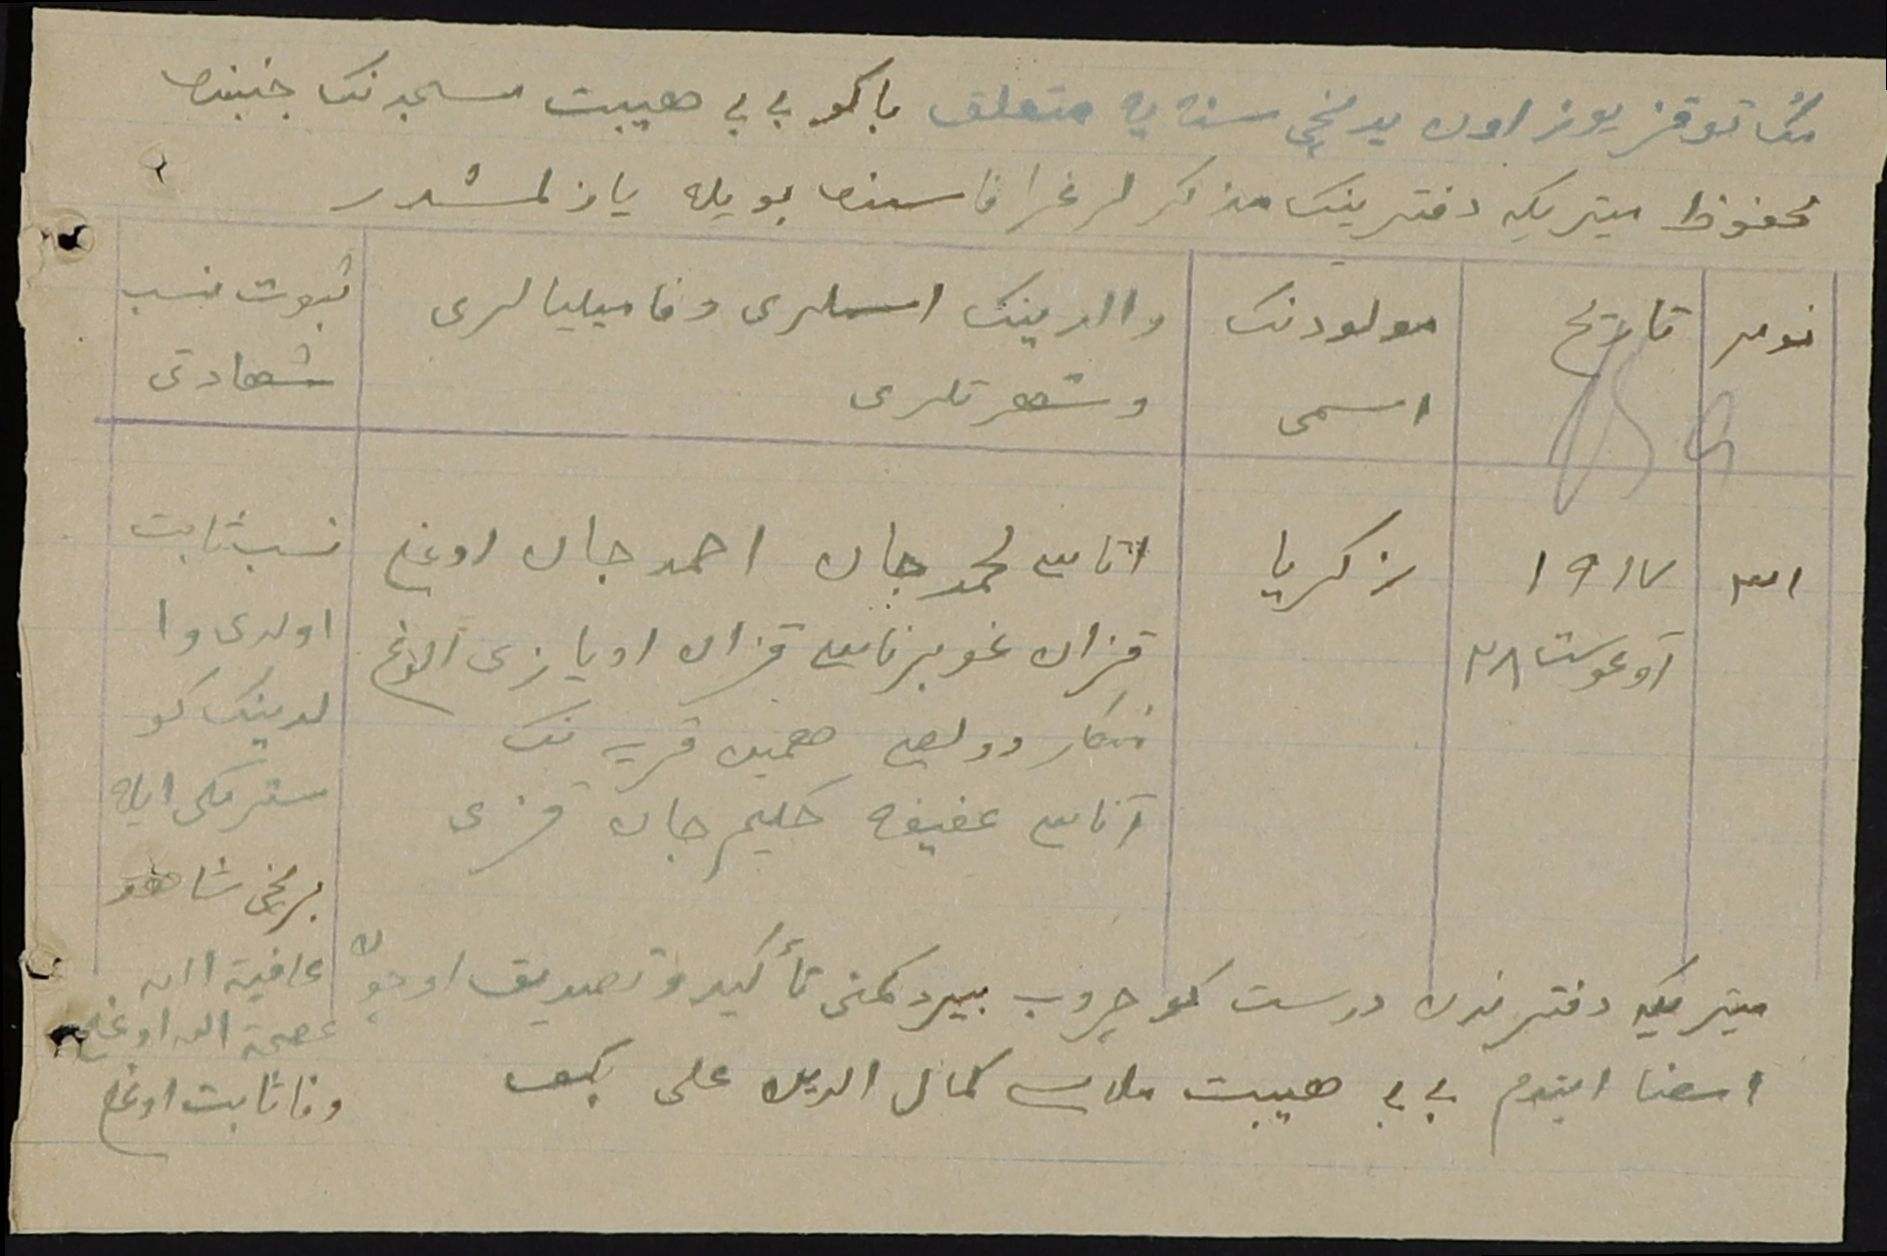 مڭ توقز یوز اون یدنجی سنه یه متعلق باکو بی بی هیبت مسجدنڭ جنبنده
محفوظ میتریکه دفترینڭ مذکر لر غرافاسنده بویله یازلمشدر
نومر
تاریخ
مولودنڭ
اسمی
والدینڭ اسملری وفامیلیالری
وشهرتلری
ثبوت نسب
شهادتی
۳۱
۱۹۱۷
آوغوست ۲۸
زکریا
اتاسی محمد جان احمد جان اوغلی
قزان غوبرناسی قزان اویازی
همین قریه نڭ
آناسی عفیفه حلیم جان قزی
نسب ثابت
اولدی وا
لدینڭ کو
سترمکی ایله
برنجی شاهد
عصمة الله اوغلی
ثابت اوغلی
میتریکه دفترندن درست کوچروب بیردکمنی تأکید وتصدیق اوچون
امضا ایتدم بی بی هیبت ملاسی کمال الدین علی بکف